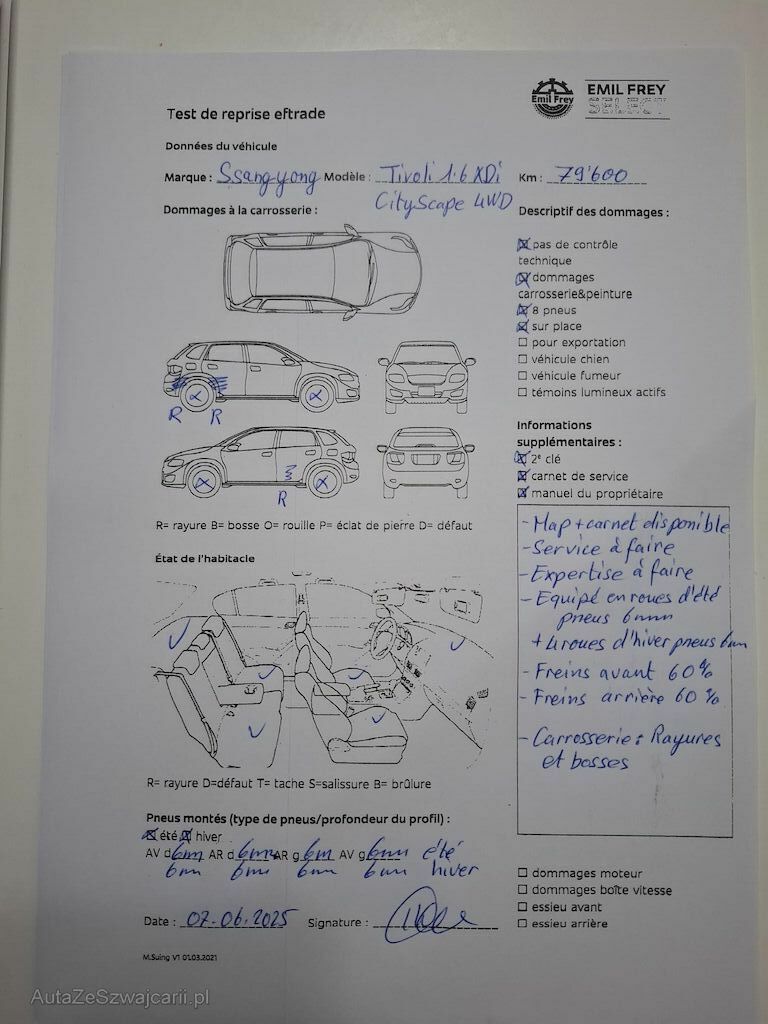 Emil Frey
EMIL FREY
SELECT
Test de reprise eftrade
Données du véhicule
Marque : Ssangyong Modèle : Tivoli 1.6 XDi Km : 79'600
CityScape 4WD
Dommages à la carrosserie :
Descriptif des dommages :
☒ pas de contrôle
technique
☒ dommages
carrosserie&peinture
☒ 8 pneus
☒ sur place
☐ pour exportation
☐ véhicule chien
☐ véhicule fumeur
☐ témoins lumineux actifs
R R
R
Informations
supplémentaires :
☒ 2e clé
☒ carnet de service
☒ manuel du propriétaire
R= rayure B= bosse O= rouille P= éclat de pierre D= défaut
- Map + carnet disponible
- Service à faire
- Expertise à faire
- Equipé en roues d'été
pneus 6mm
+ 4 roues d'hiver pneus 6mm
- Freins avant 60%
- Freins arrière 60%
- Carrosserie : Rayures
et bosses
État de l'habitacle
R= rayure D=défaut T= tache S=salissure B= brûlure
Pneus montés (type de pneus/profondeur du profil) :
☒ été ☒ hiver
AV d 6mm AR d 6mm AR g 6mm AV g 6mm été
6mm 6mm 6mm 6mm hiver
☐ dommages moteur
☐ dommages boîte vitesse
☐ essieu avant
☐ essieu arrière
Date : 07.06.2025 Signature :
M.Suing V1 01.03.2021
AutaZeSzwajcarii.pl